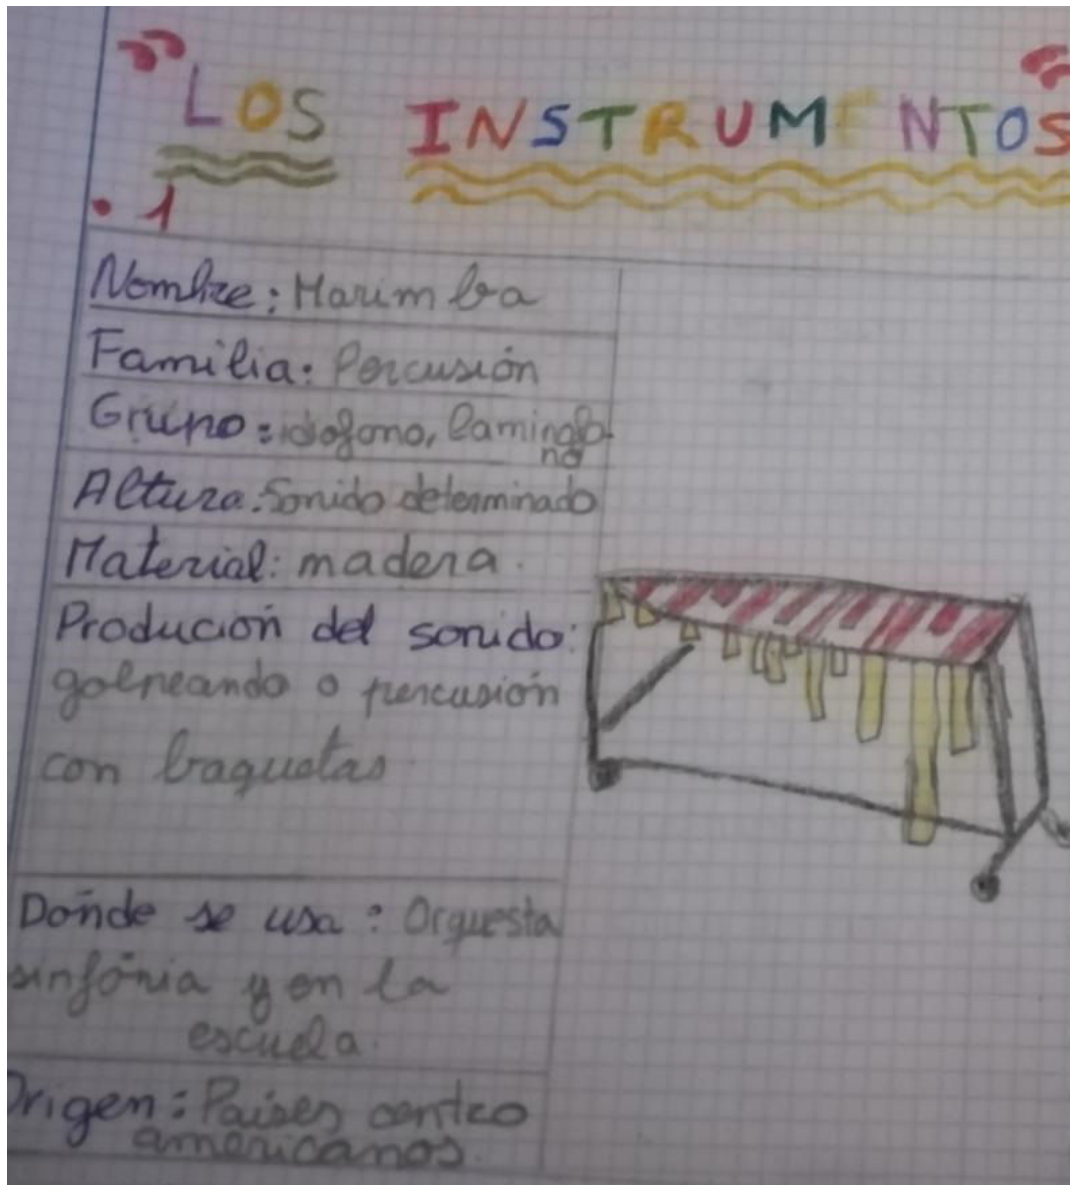 LOS INSTRUMENTOS
• 1
Nombre: Marimba
Familia: Percusión
Grupo: idófono, laminófo
no
Altura: Sonido determinado
Material: madera.
Produción del sonido:
golpeando o percusión
con baquetas
Dónde se usa: Orquesta
sinfónia y en la
escuela.
Origen: Países centro
americanos.